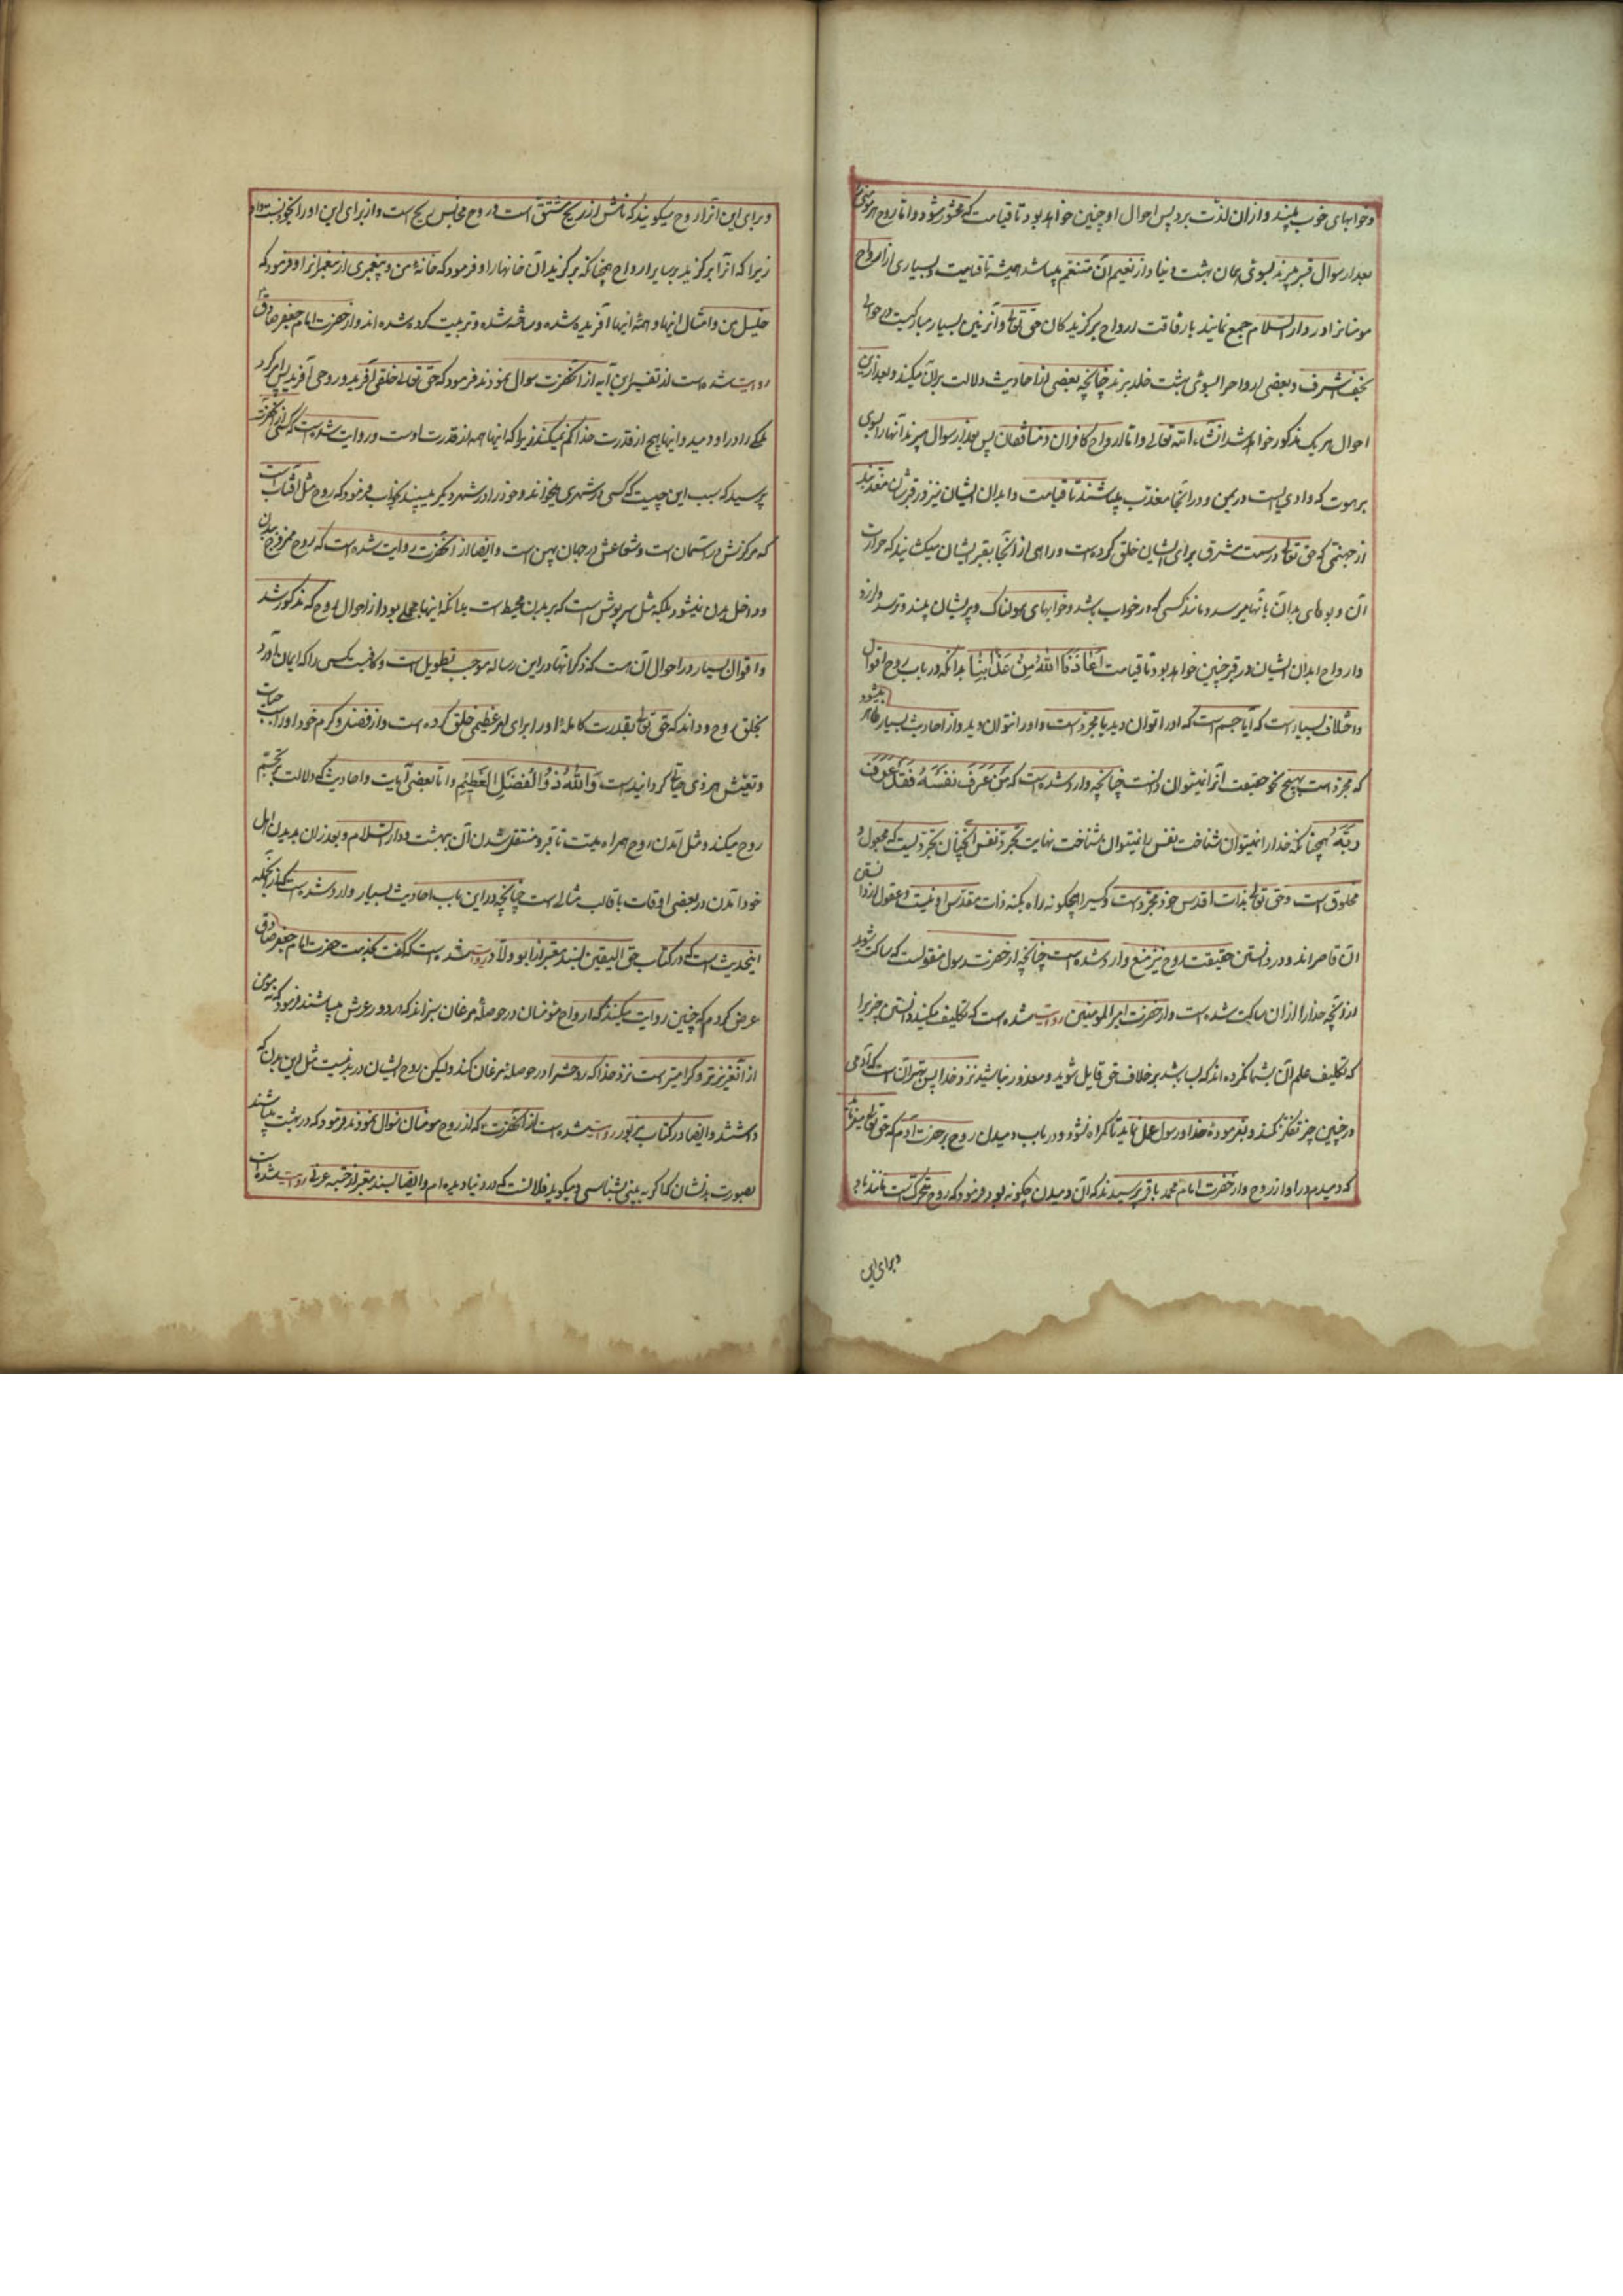 وخوابهای خوب بیند و ازان لذت برد پس احوال او چنین خواهد بود تا قیامت که محشور شود و اما روح هر مومنی
بعد از سوال قبر میبرند بسوی همان بهشت دنیا و از نعیم آن متنعم میباشد همیشه تا قیامت و بسیاری از ارواح
مومنانرا در دار السلام جمع نمایند با رفاقت ارواح برگزیدکان حق تعالی و آنزمین بسیار مبارکیست در حوالی
نجف اشرف و بعضی ارواحرا بسوی بهشت خلد برند چنانچه بعضی از احادیث دلالت بران میکند و بعد ازین
احوال هر یک مذکور خواهد شد انشاء الله تعالی و اما ارواح کافران و منافقان پس بعد از سوال میبرند آنها را بسوی
برهوت که وادی است در یمن و در آنجا معذب میباشند تا قیامت و ابدان ایشان نیز در قبرشان معذبند
از جهنمی که حق تعالی در سمت مشرق برای ایشان خلق کرده است و راهی از آنجا بقبر ایشان میکشایند که حرارت
آن و بوهای بد آن بآنها میرسد و مانند کسی که در خواب باشد و خوابهای هولناک و پریشان بیند و ترسد و ارزد
و ارواح ابدان ایشان در قبر چنین خواهد بود تا قیامت اَعَاذَنَا اللهُ مِنْ عَذَابِنَا بدانکه در باب روح اقوال
و اختلاف بسیار است که آیا جسم است که او را توان دید یا مجرد است و او را نتوان دید و از احادیث بسیار ظاهر میشود
که مجرد است بهیچ نحو حقیقت آنرا نمیتوان دانست چنانچه وارد شده است که مَنْ عَرَفَ نَفْسَهُ فَقَدْ عَرَفَ
رَبَّهُ همچنانکه خدا را نمیتوان شناخت نفس را نمیتوان شناخت نهایت تجرد نفس آنچنان تجردیست که مجعول و
مخلوق است و حق تعالی بذات اقدس خود مجرد است و کسیرا هیچکونه راه بکنه ذات مقدس او نیست و عقول از دانستن
آن قاصراند و در دانستن حقیقت روح نیز منع وارد شده است چنانچه از حضرت رسول منقولست که ساکت شوید
از آنچه خدا را از ان ساکت شده است و از حضرت امیر المومنین روایت شده است که تکلیف مکنید دانستن چیزیرا
که تکلیف علم آن بشما نکرده اند که بسا باشد بر خلاف حق قایل شوید و معذور نباشید نزد خدا پس بهتر آن است که آدمی
در چنین چیز تفکر نکند و بفرمودهٔ خدا و رسول عمل نماید تا گمراه نشود و در باب دمیدن روح بر حضرت آدم که حق تعالی میفرماید
که دمیدم در او از روح و از حضرت امام محمد باقر پرسیدند که آن دمیدن چکونه بود فرمود که روح متحرک است مانند باد
و برای این
و برای این آنرا روح میکویند که نامش از ریح مشتق است و روح مجانس ریح است و از برای این او را بخود نسبت داد
زیرا که آنرا برگزید بر سایر ارواح چنانکه برگزید از آن خانها را و فرمود که خانهٔ من و پیغمبری از پیغمبرانرا و فرمود که
خلیل من و امثال اینها و همهٔ اینها آفریده شده و ساخته شده و تربیت کرده شده اند و از حضرت امام جعفر صادق
روایت شده است از تفسیر این آیه از آنحضرت سوال نمودند فرمود که حق تعالی خلقی آفرید و روحی آفرید پس امر کرد
ملکی را در او دمید و اینها هیچ از قدرت خدا کم نمیکند زیرا که اینها همه از قدرت اوست و روایت شده است که کسی از آنحضرت
پرسید که سبب این چیست که کسی در شهری میخوابد و خود را در شهر دیکر میبیند بخواب فرمود که روح مثل آفتاب است
که مرکزش در آسمان است و شعاعش در جهان پهن است و ایضا از آنحضرت روایت شده است که روح ممزوج ببدن
و داخل بدن نمیشود بلکه مثل سرپوش است که بر بدن محیط است بدانکه اینها مجملی بود از احوال روح که مذکور شد
و اقوال بسیار در احوال آن هست که ذکر آنها در این رساله موجب تطویل است و کافیست کسی را که ایمان آورد
بخلق روح و داند که حق تعالی بقدرت کاملهٔ او را برای امر عظیمی خلق کرده است و از فضل و کرم خود او را سبب حیات
و تعیّش هر ذی حیاة کردانیده است وَاللهُ ذُو الْفَضْلِ الْعَظِیْمِ و اما بعضی آیات و احادیث که دلالت بر تجسم
روح میکند و مثل آمدن روح همراه میت تا قبر و منتقل شدن آن ببهشت و دار السلام و بعد از آن بدیدن اهل
خود آمدن در بعضی اوقات با قالب مثالی است چنانچه در این باب احادیث بسیار وارد شده است که از انجمله
اینحدیث است که در کتاب حق الیقین بسند معتبر از ابو ولاد روایت شده است که گفت بخدمت حضرت امام جعفر صادق
عرض کردم که چنین روایت میکنند که ارواح مومنان در حوصلهٔ مرغان سبزاند که در دور عرش میباشند فرمود که نه مومن
از آن عزیزتر و کرامیتر است نزد خدا که روحشرا در حوصلهٔ مرغان کند ولیکن روح ایشان در بدنیست مثل این بدن که
داشتند و ایضا در کتاب مزبور روایت شده است از آنحضرت که از روح مومنان سوال نمودند فرمود که در بهشت میباشند
بصورت بدنشان که اکر به بینی بشناسی و میکوید فلانست که در دنیا دیده ام و ایضا بسند معتبر از حبه عرنی روایت شده است